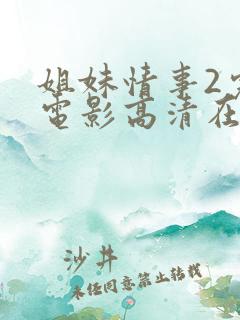 姐妹情事2
電影高清在
沙井
未经同意禁止转载